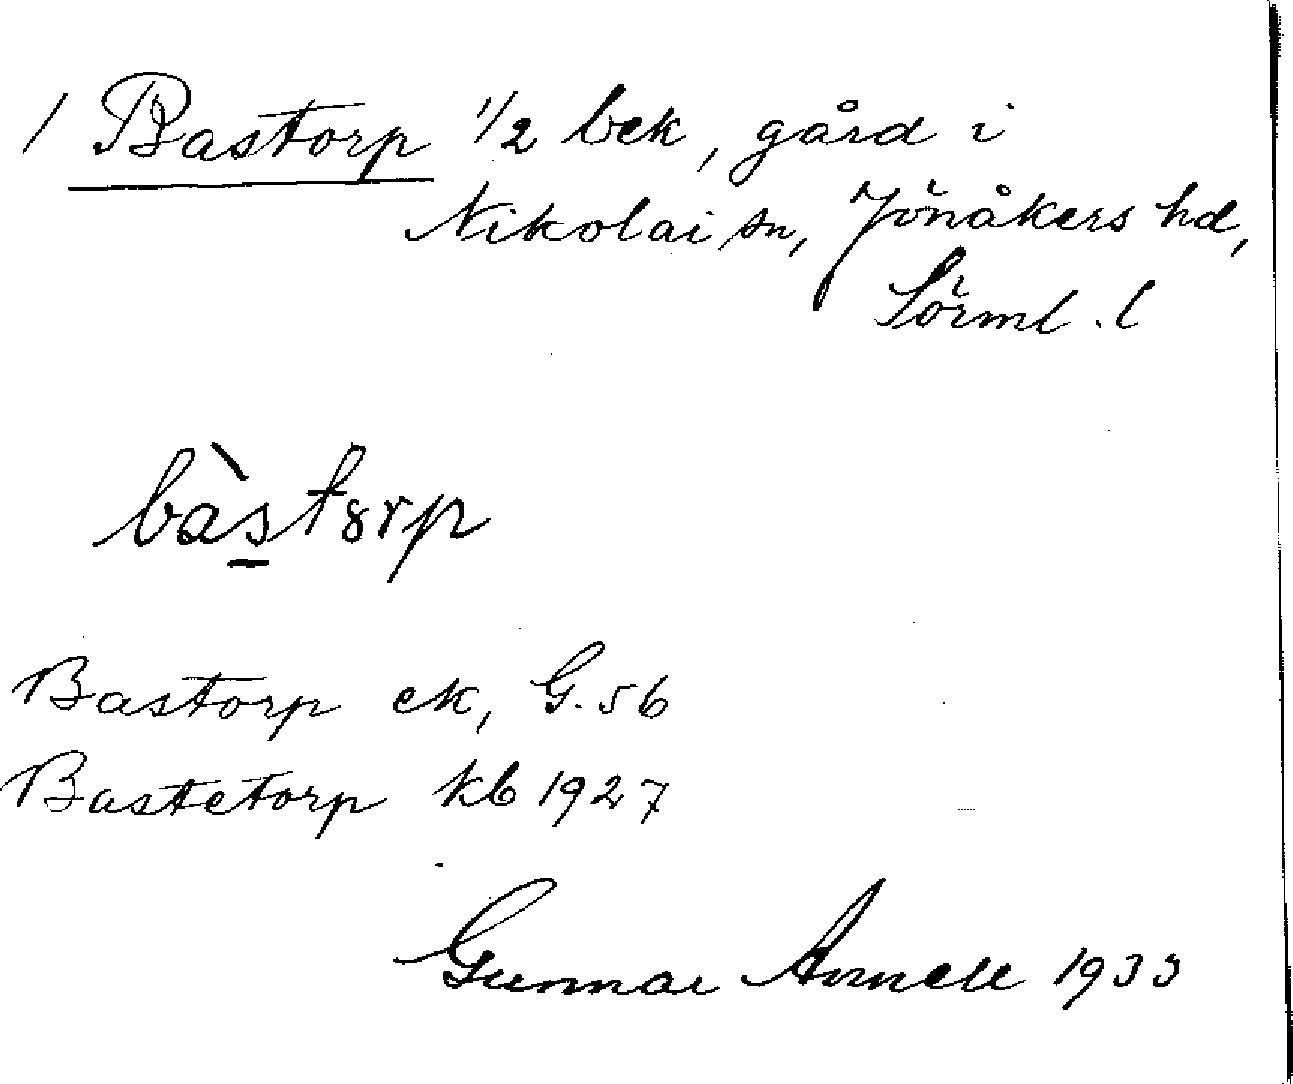 / Bastorp 1/2 bek, gård i
Nikolai sn, Jönåkers hd,
Sörml. l
bàs̱tȣrp
Bastorp ek, G. 56
Bastetorp kb 1927
Gunnar Arnell 1933